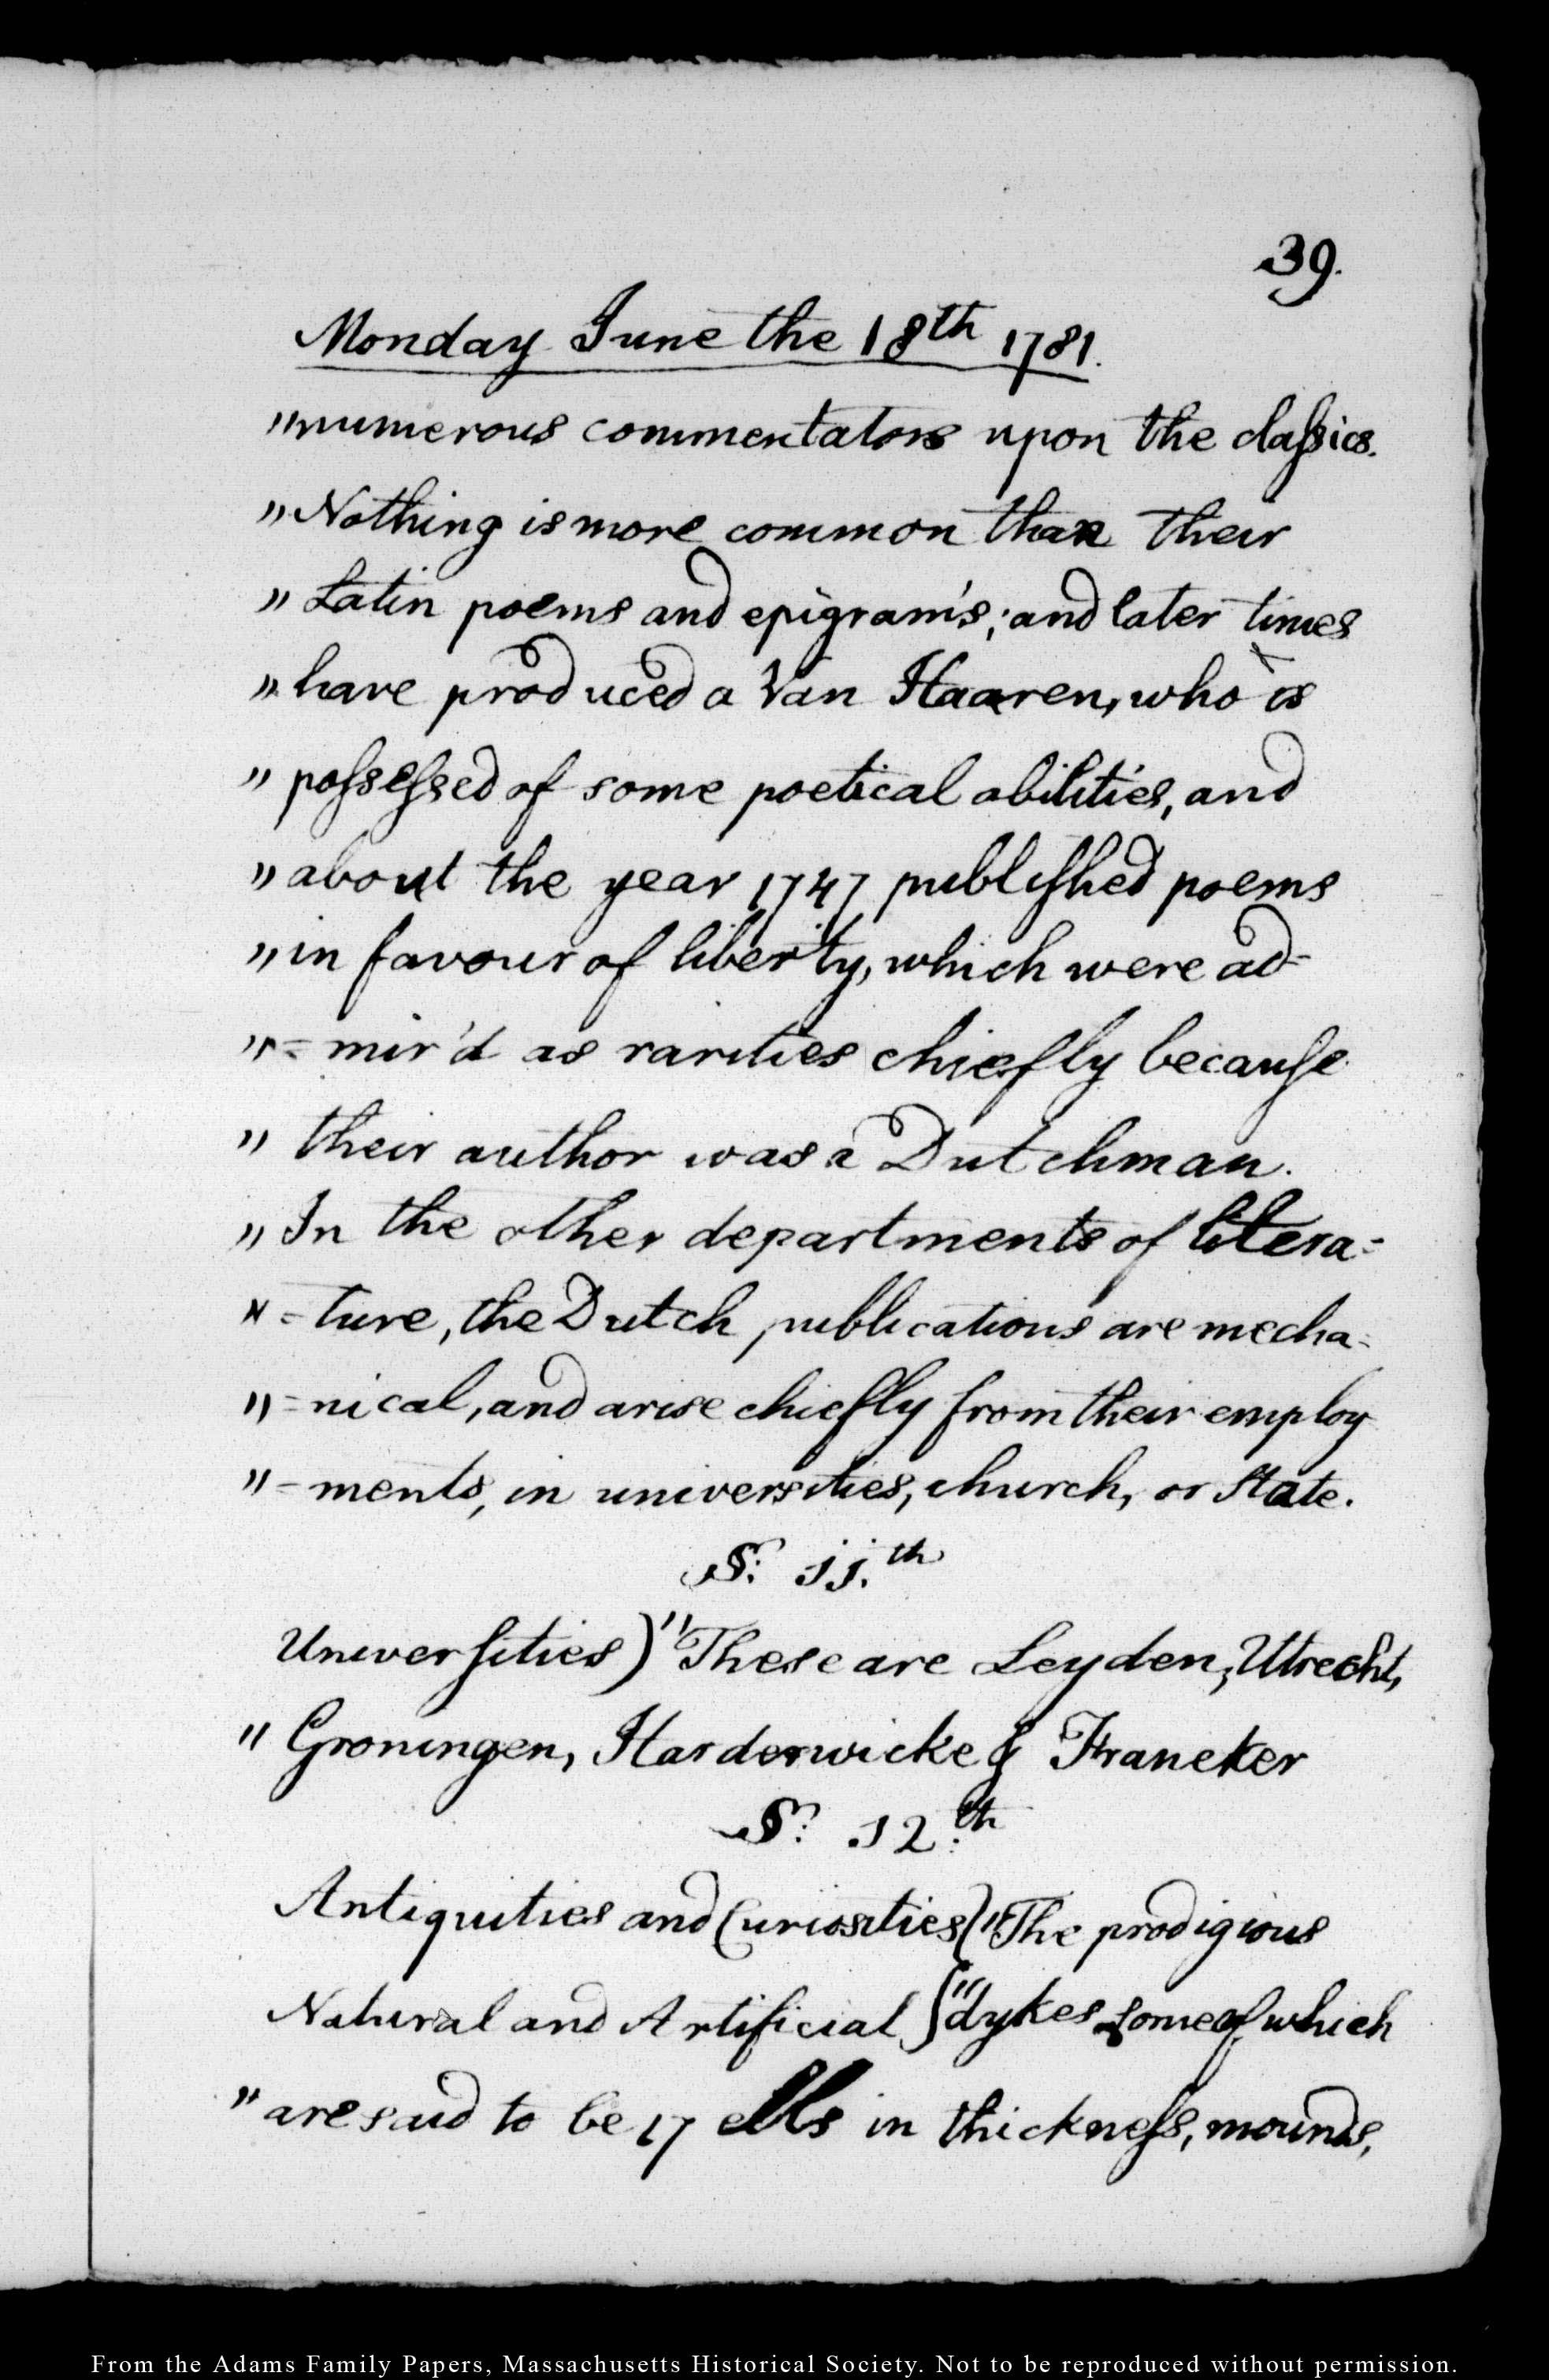 39.
Monday June the 18th 1781.
"numerous commentators upon the claſsics.
"Nothing is more common than their
"Latin poems and epigram's; and later times
"have produced a Van Haaren, who is
"poſseſsed of some poetical abilities, and
"about the year 1747 publiſhed poems
"in favour of liberty, which were ad-
"=mir'd as rarities chiefly becauſe
"their author was a Dutchman.
"In the other departments of litera=
"=ture, the Dutch publications are mecha=
"=nical, and arise chiefly from their employ
"-ments, in universities, church, or State.
S: 11.th
Univerſities) "These are Leyden, Utrecht,
"Groningen, Harderwicke & Franeker
S: 12.th
Antiquities and Curiosities} "The prodigious
Natural and Artificial } "dykes some of which
"are said to be 17 ells in thickneſs, mounds,
From the Adams Family Papers, Massachusetts Historical Society. Not to be reproduced without permission.